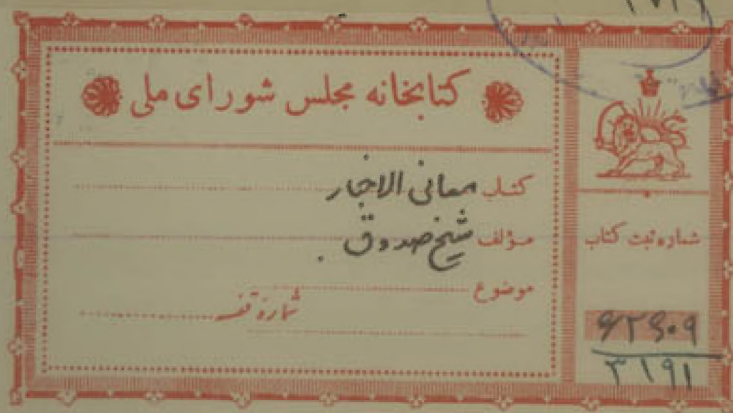 کتابخانه مجلس شورای ملی
کتاب معانی الاخبار
مؤلف شیخ صدوق
موضوع
شماره قفسه
شماره ثبت کتاب
۶۲۶۰۹
۳۱۹۱